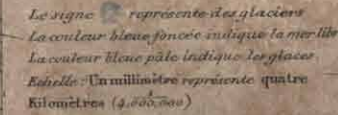 Le signe représente des glaciers
La couleur bleue foncée indique la mer libre
La couleur bleue pâle indique les glaces.
Echelle: Un millimètre représente quatre
Kilomètres (4,000,000)